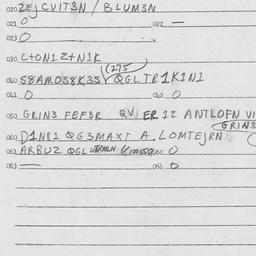 020 ZEJ CVIT3N / BLUM3N
021 0 022 —
023 0
030 C+ON1Z+N1K
(275
040 S8AMOS8K3S QGLTR1K1N1
041 0 042 0
050 GRIN3 FEF3R QV ER 12 ANTLOFN VI
GRIN3
060 D1N81 QG3MAXT A. LOMTEJRN
061 ARBUZ QGL 0
063 — 064 0